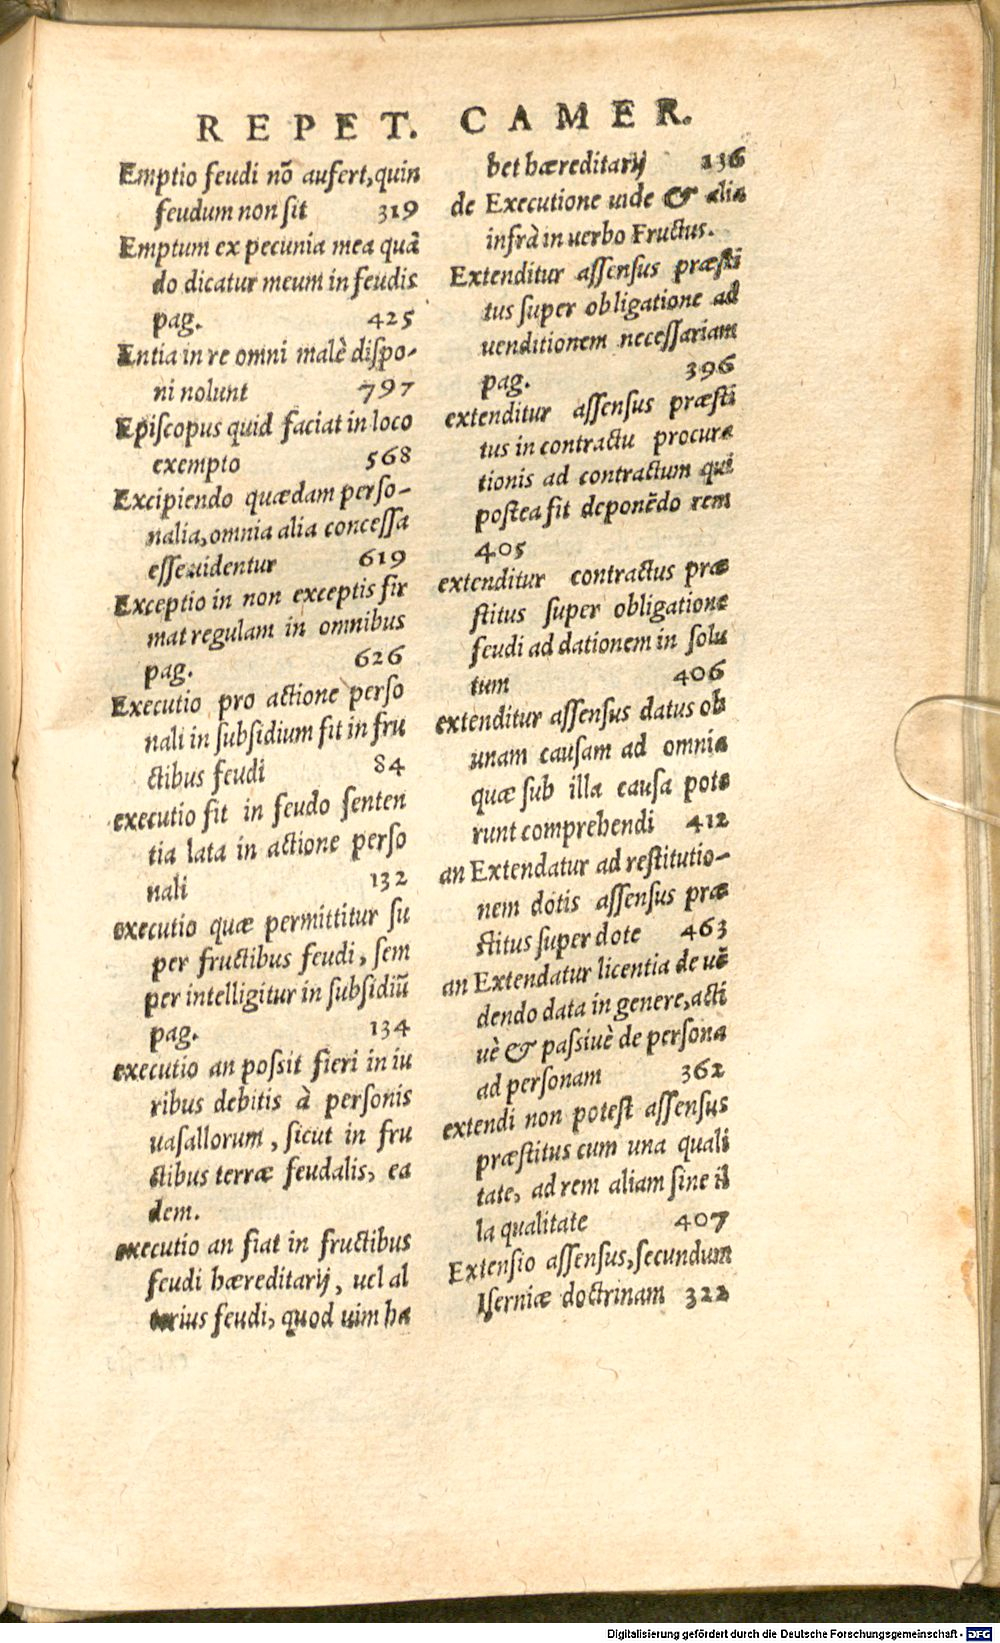 REPET. CAMER.
Emptio feudi nõ aufert, quin
feudum non sit 319
Emptum ex pecunia mea quã
do dicatur meum in feudis
pag. 425
Entia in re omni malè dispo-
ni nolunt 797
Episcopus quid faciat in loco
exempto 568
Excipiendo quædam perso-
nalia, omnia alia concessa
esse uidentur 619
Exceptio in non exceptis fir
mat regulam in omnibus
pag. 626
Executio pro actione perso
nali in subsidium fit in fru
ctibus feudi 84
executio fit in feudo senten
tia lata in actione perso
nali 132
executio quæ permittitur su
per fructibus feudi, sem
per intelligitur in subsidiũ
pag. 134
executio an possit fieri in iu
ribus debitis à personis
uasallorum, sicut in fru
ctibus terræ feudalis, ea
dem.
executio an fiat in fructibus
feudi hæreditarij, uel al
terius feudi, quod uim ha
bet hæreditarij 136
de Executione uide & alia
infrà in uerbo Fructus.
Extenditur assensus præsti
tus super obligatione ad
uenditionem necessariam
pag. 396
extenditur assensus præsti
tus in contractu procura
tionis ad contractum qui
postea fit deponẽdo rem
405
extenditur contractus præ
stitus super obligatione
feudi ad dationem in solu
tum 406
extenditur assensus datus ob
unam causam ad omnia
quæ sub illa causa pote
runt comprehendi 412
an Extendatur ad restitutio-
nem dotis assensus præ
stitus super dote 463
an Extendatur licentia de uẽ
dendo data in genere, acti
uè & passiuè de persona
ad personam 362
extendi non potest assensus
præstitus cum una quali
tate, ad rem aliam sine il
la qualitate 407
Extensio assensus, secundum
Iserniæ doctrinam 322
Digitalisierung gefördert durch die Deutsche Forschungsgemeinschaft - DFG